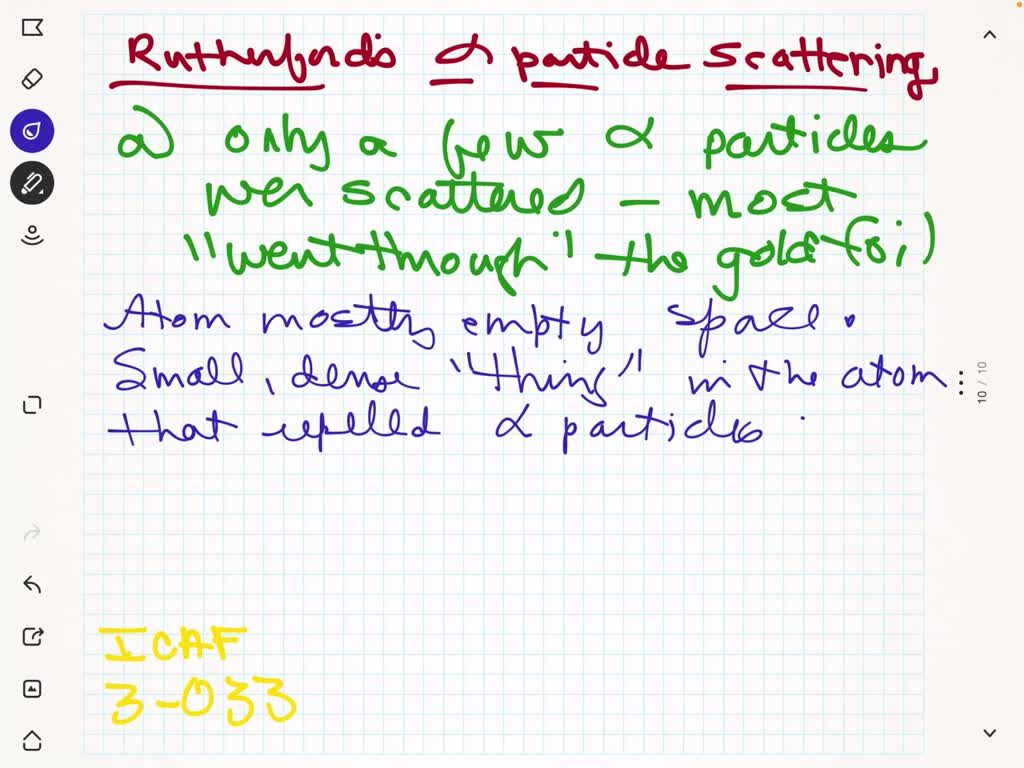 Rutherford's α particle Scattering
a) only a few α particles
wer scattered — most
"went through" the gold foil
Atom mostly empty space.
Small, dense "thing" in the atom
that repelled α particles.
ICAF
3-033
10 / 10